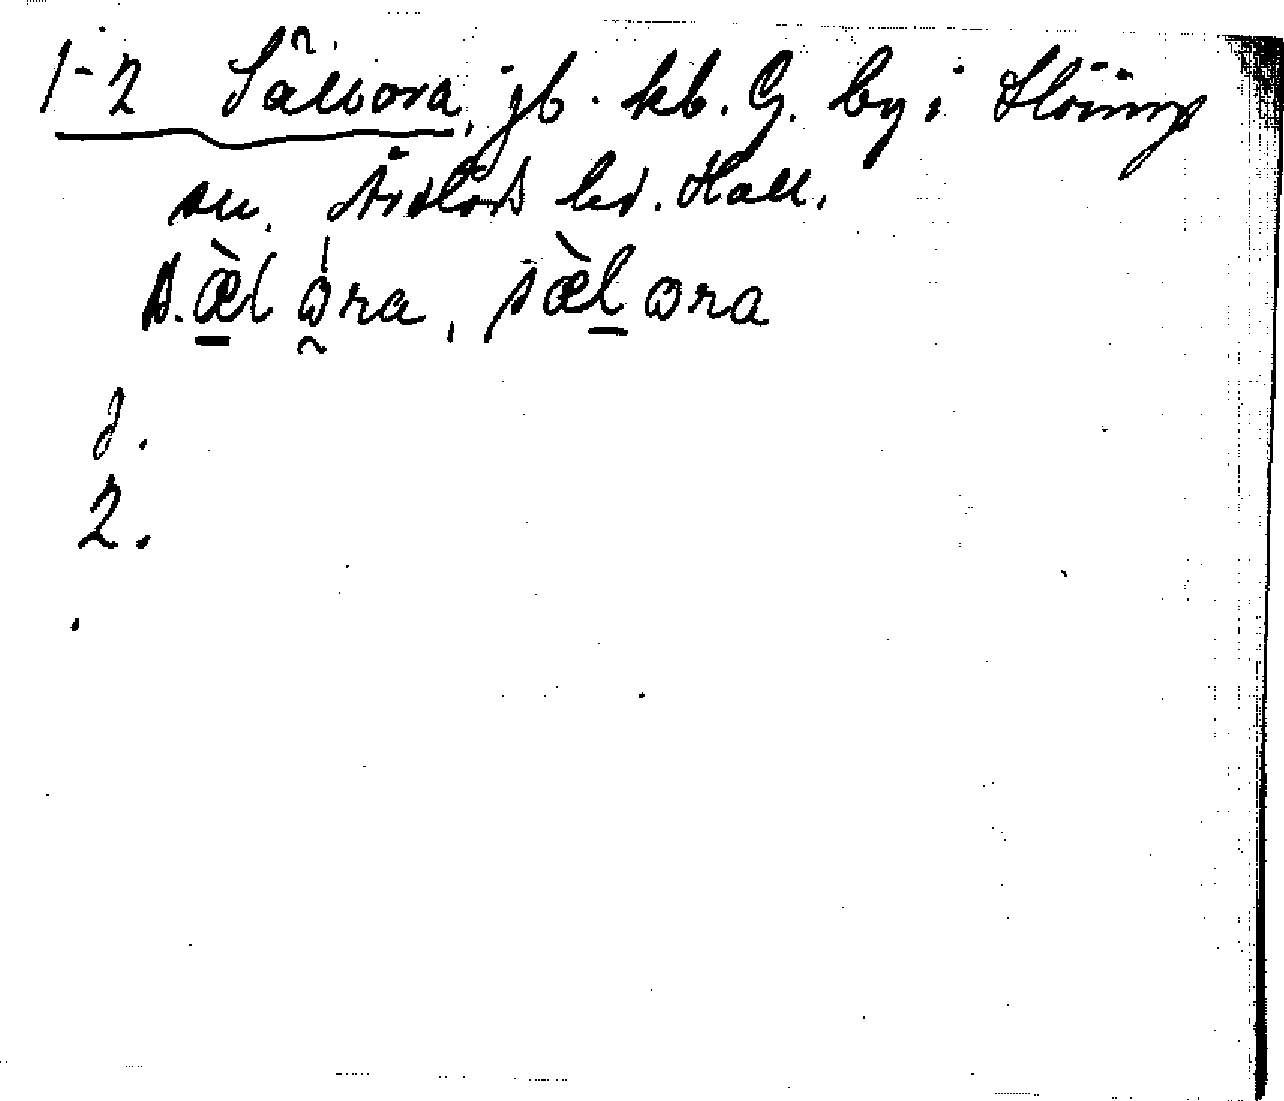 1-2 Sällvora, jb. kb. G. by i Slöinge
sn. Årstads hd. Hall.
s.æ̀l ɷ́ra, sæ̀l ɷra
1.
2.